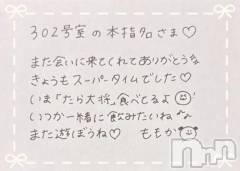 302号室の本指名さま♡
また会いに来てくれてありがとうな
きょうもスーパータイムでした♡
いま「たら大将」食べてるよ
いつか一緒に飲みたいねな
また遊ぼうね♡ ももか